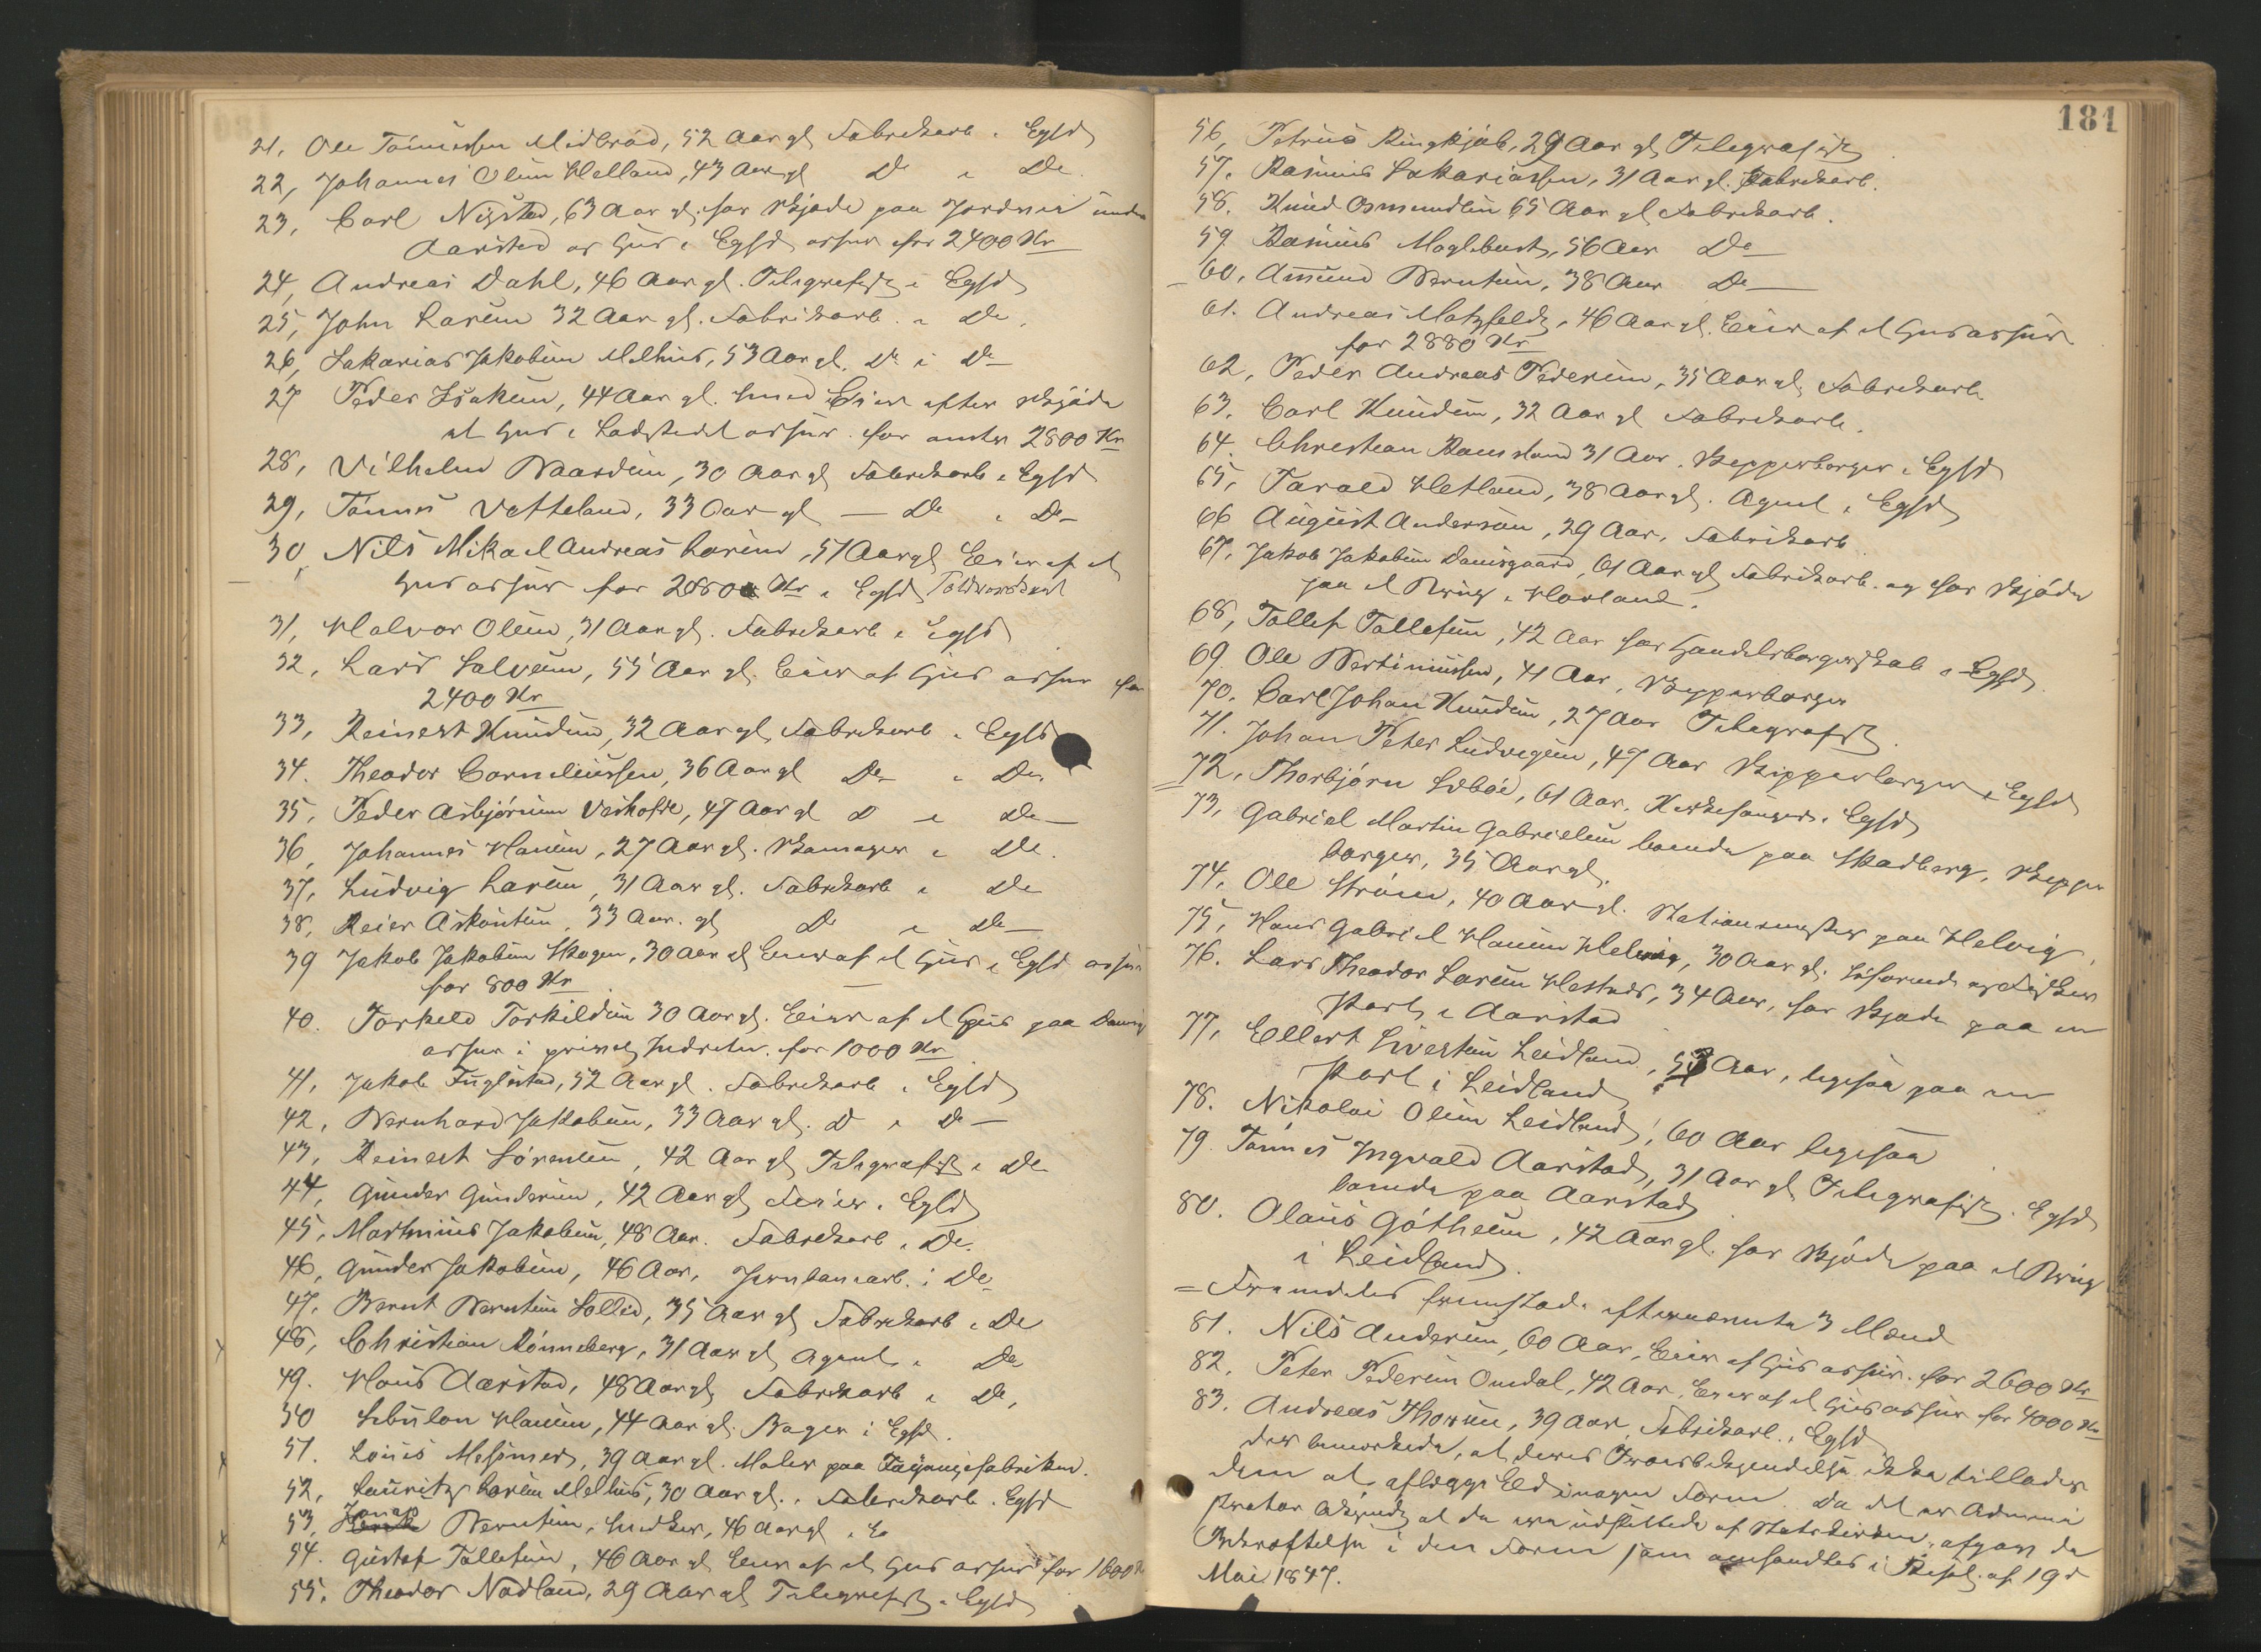 21, Ole Tönnessen Midbröd, 52 Aar gl Fabrikarb. i Egsd
22, Johannes Olsen Helland, 43 Aar gl Do i Do.
23, Carl Nystad, 63 Aar gl. har Skjøde paa Jordvei under
Aarstad og Huus i Egsd assur for 2400 Kr
24, Andreas Dahl, 46 Aar gl. Telegrafist i Egsd
25, John Larsen 32 Aar gl. Fabrikarb. i Do.
26, Sakarias Jakobsen Melhus, 53 Aar gl. Do i Do
27 Peder Isaksen, 44 Aar gl. Smed Eier efter Skjøde
et Huus i Ladestedet assur. for 2800 Kr
28, Vilhelm Baardsen, 30 Aar gl Fabrikarb i Egsd
29, Tönnes Vatteland, 33 Aar gl — Do i Do
30, Nils Mikael Andreas Larsen, 57 Aar gl Eier af et
Huus assur for 2850 Kr i Egsd
31, Halvor Olsen, 31 Aar gl. Fabrikarb i Egsd
32, Lars Salvesen, 55 Aar gl. Eier af Huus assur for
2400 Kr
33, Reinert Knudsen, 32 Aar gl, Fabrikarb i Egsd
34. Theodor Corneliussen, 36 Aar gl Do i Do.
35, Peder Asbjörnsen Veshovde, 47 Aar gl D i Do
36, Johannes Hansen, 27 Aar gl. Skomager i Do.
37, Ludvig Larsen, 31 Aar gl. Fabrikarb i Do
38, Reier Askautsen, 33 Aar. gl Do i Do
39 Jakob Jakobsen Skogen, 30 Aar gl Eier af et Huus i Egsd assur
for 800 Kr
40. Torkeld Torkildsen 30 Aar gl. Eier af et Huus paa
assur i privat Indretn. for 1000 Kr
41, Jakob Fuglestad, 52 Aar gl. Fabrikarb i Egsd
42, Bernhard Jakobsen, 33 Aar gl. D i D
43, Reinert Sörensen, 42 Aar gl Telegrafist i Do
44, Gunder Gundersen, 42 Aar gl i Egsd
45, Martinius Jakobsen, 48 Aar. Fabrikarb i Do.
46, Gunder Jakobsen, 46 Aar, Jernbanearb. i Do
47, Bernt Berntsen Sollid, 35 Aar gl Fabrikarb i Do
48, Christian Rönneberg, 31 Aar gl Agent i Do
49. Hans Aarstad, 48 Aar gl Fabrikarb i Do,
50 Sebulon Hansen, 44 Aar gl. Bager i Egsd.
51. Louis Messmer, 39 Aar gl. Maler paa Fayancefabriken.
52, Lauritz Larsen Melhus, 30 Aar gl., Fabrikarb. Egsd
53, Jonas Berntsen, Snedker, 46 Aar gl i Do
54. Gustaf Tollefsen, 46 Aar gl Eier af et Huus assur for 1600 Kr
55. Theodor Nodland, 29 Aar gl Telegrafist i Egsd
181
56, Petrus Ringkjøb, 29 Aar gl Telegrafist
57. Rasmus Sakariassen, 31 Aar gl. Fabrikarb.
58. Knud Osmundsen 65 Aar gl Fabrikarb.
59 Rasmus Moglebust, 56 Aar Do
60, Amund Berntsen, 38 Aar Do
61. Andreas Matzfeldt, 46 Aar gl. Eier af et Huus assur
for 2880 Kr
62, Peder Andreas Pedersen, 35 Aar gl. Fabrikarb
63. Carl Knudsen, 32 Aar gl Fabrikarb.
64. Christian Raunsland 31 Aar. Skipperborger i Egsd
65, Tarald Hetland, 38 Aar gl. Agent i Egsd
66 August Andersen, 29 Aar, Fabrikarb
67, Jakob Jakobsen Damsgaard, 61 Aar gl Fabrikarb. og har Skjöde
paa et Brug i Hovland.
68, Tollef Tollefsen, 42 Aar har Handelsborgerskab i Egsd
69. Ole Bertiniussen, 41 Aar, Skipperborger
70. Carl Johan Knudsen, 27 Aar Telegrafist.
71. Johan Peter Ludvigsen, 47 Aar Skipperborger i Egsd
72, Thorbjörn Seböe, 61 Aar. Kirkesanger. Egsd
73, Gabriel Martin Gabrielsen boende paa Skadberg, Skipper
borger, 35 Aar gl.
74, Ole Ström, 40 Aar gl. Stationsmester paa Helvig,
75, Hans Gabriel Hansen Helvig, 30 Aar gl. Söfarende og Fisker
76. Lars Theodor Larsen Hestnes, 34 Aar, har Skjøde paa en
Part i Aarstad
77, Ellert Sivertsen Leidland, 53 Aar, ligesaa paa en
Part i Leidland
78. Nikolai Olsen Leidland, 60 Aar ligesaa
79. Tönnes Ingvald Aarstad, 31 Aar gl Telegrafist. Egsd
boende paa Aarstad
80. Olaus Gøthesen, 42 Aar gl. har Skjöde paa et Brug
i Leidland.
= Fremdeles fremstod efternævnte 3 Mænd
81. Nils Andersen, 60 Aar, Eier af Huus assur. for 2600 Kr
82, Peter Pedersen Omdal, 42 Aar, Eier af et Huus assur for 4000 Kr
83. Andreas Thorsen, 39 Aar, Fabrikarb. i Egsd
der bemærkede, at deres Troesbekjendelse ikke tillader
dem at aflægge Ed i nogen Form. Da det
at de ere udtraadte af Statskirken, afgav de
Bekræftelse i den Form som omhandles i af 19de
Mai 1847.